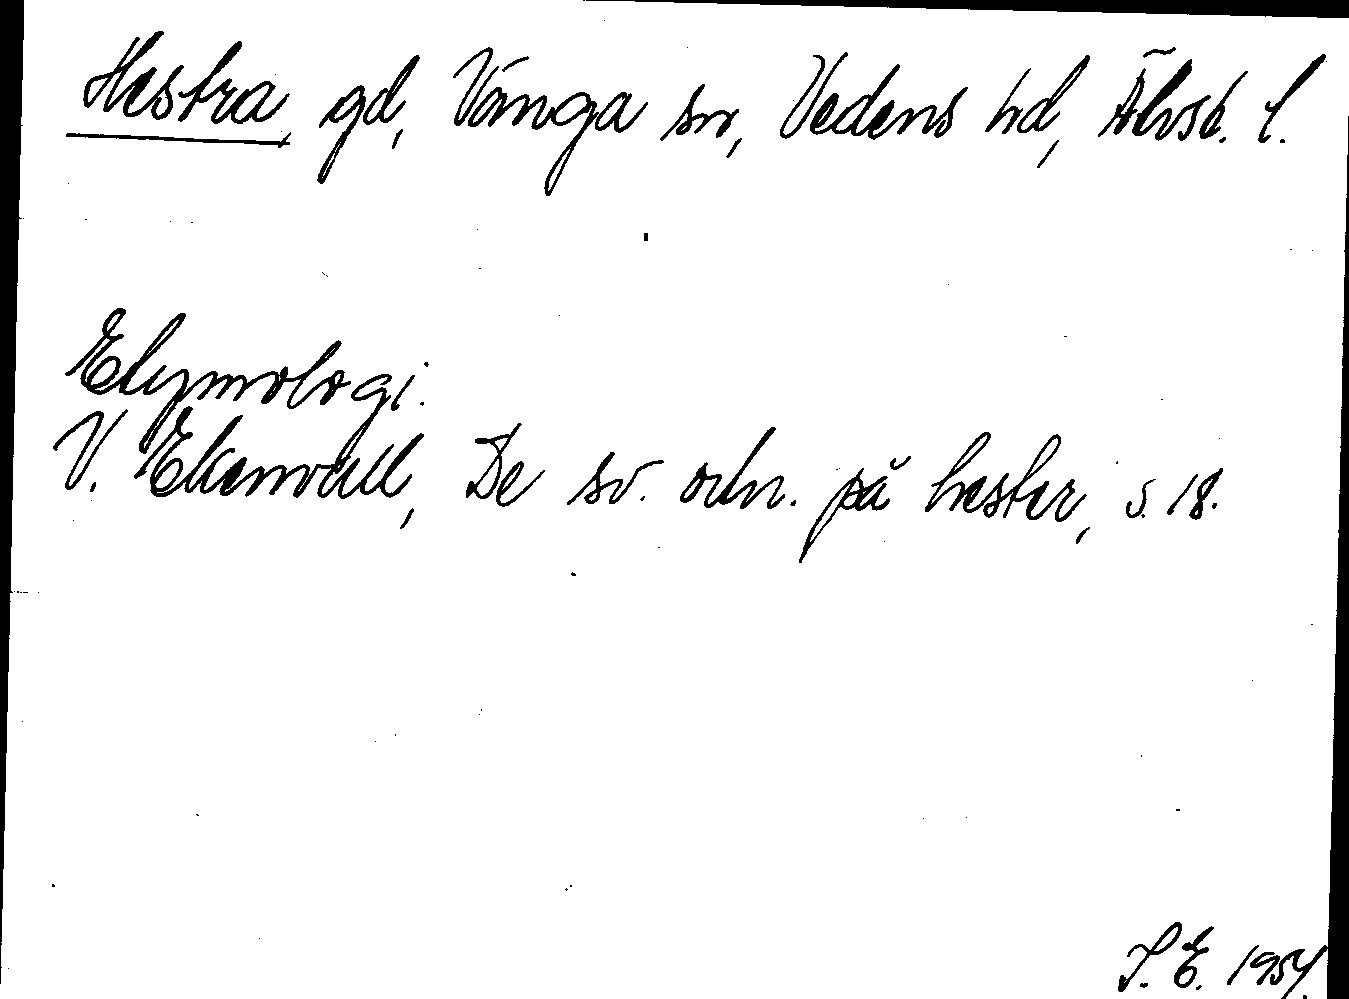 Hestra gd, Vånga sn, Vedens hd, Älvsb. l.
Etymologi.
V. Ekenvall, De sv. ortn. på hester, s. 18.
S. E. 1954.